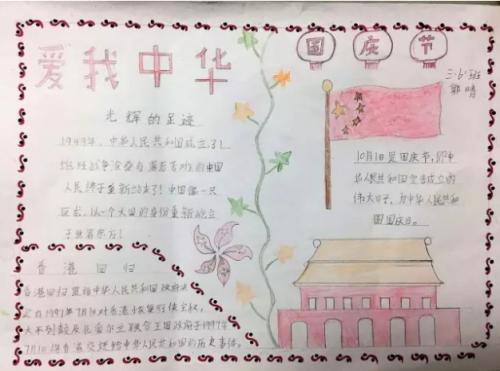 爱我中华
国庆节
三.6班
郭晴
光辉的足迹
1949年,中华人民共和国成立了!
战争
苦难的中国
人民终于重新站起来了!中国像一只
巨龙,以一个大国的身份重新屹立
于世界东方!
10月1日是国庆节,即中
华人民共和国宣告成立的
伟大日子,为中华人民共和
国国庆日。
香港回归
香港回归是指中华人民共和国政府决
定在1997年7月1日对香港恢复行使主权,
大不列颠及北爱尔兰联合王国政府于1997年
7月1日将香港交还给中华人民共和国的历史事件。